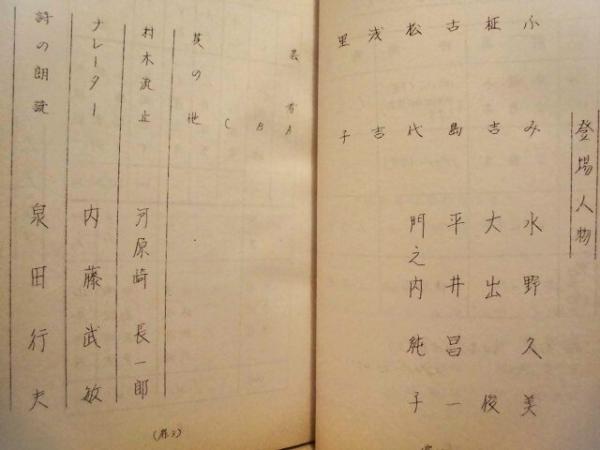 登場人物
ふみ 水野久美
柾吉 大出俊
古島 平井昌一
松代 門之内純子
浅吉
里子
芸者A
B
C
其の他
村木 河原崎長一郎
ナレーター 内藤武敏
詩の朗読 泉田行夫